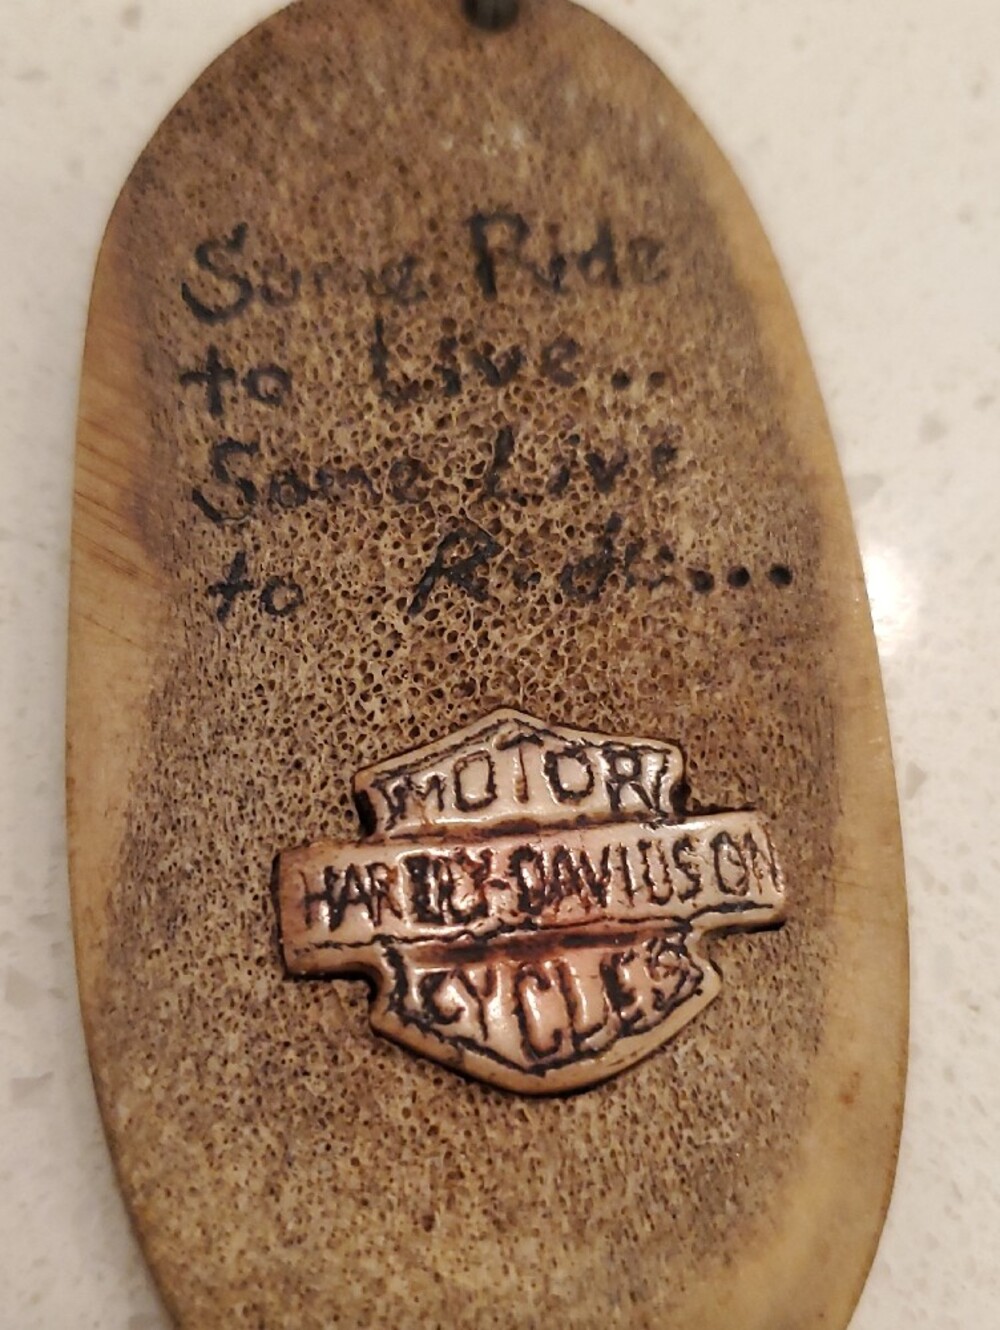 Some Ride
to Live..
Some Live
to Ride...
MOTOR
HARLEY-DAVIDSON
CYCLES